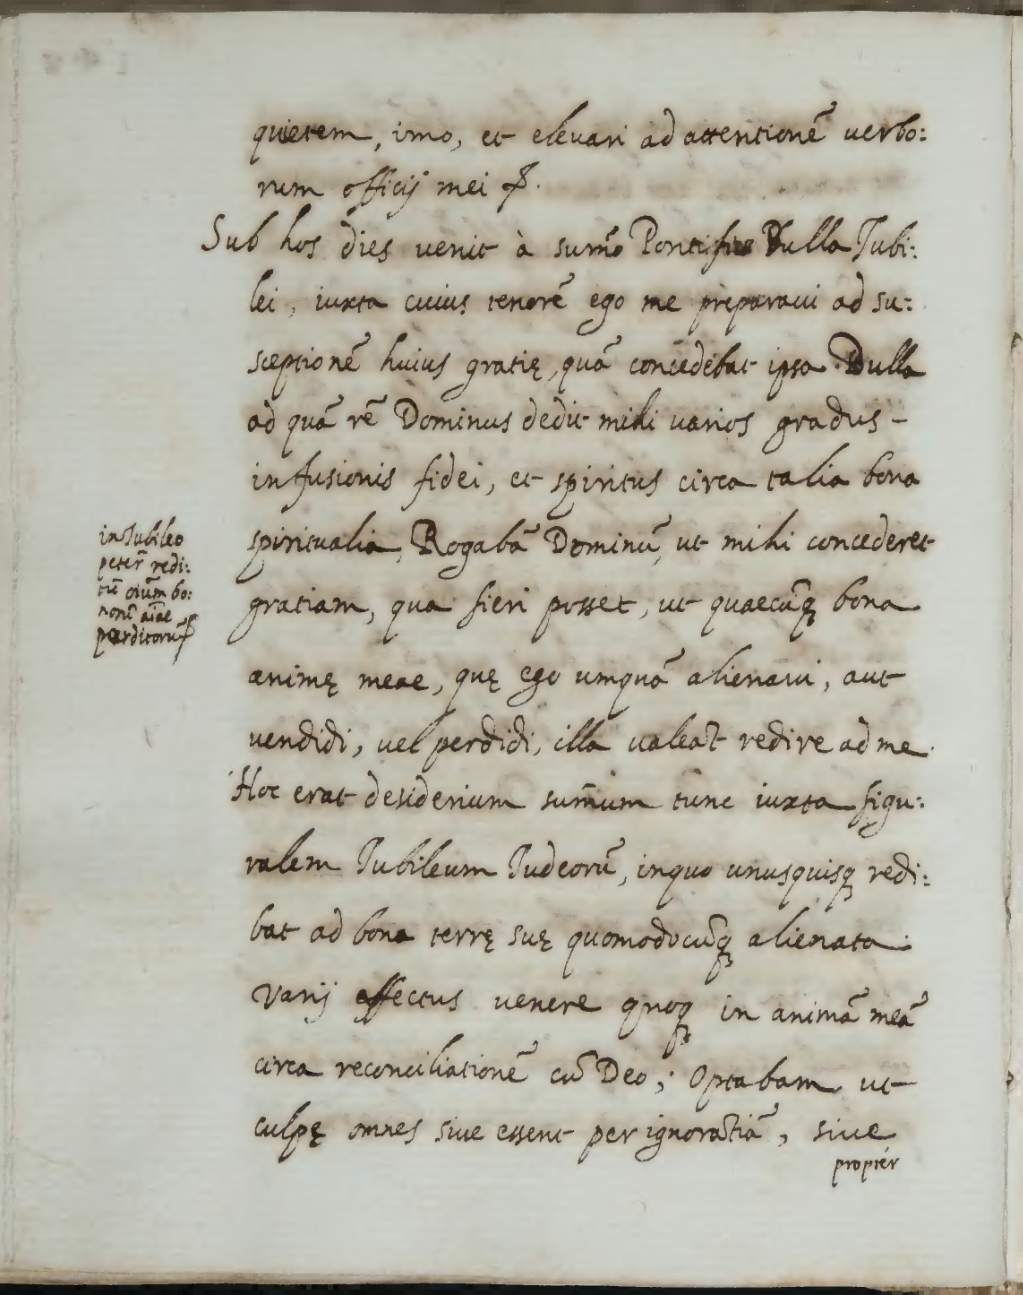 quietem, imo, et elevari ad attentionẽ uerbo:
rum officij mei
Sub hos dies uenit à sum̃o Pontifice Bulla Jubi:
lei, iuxta cuius tenorẽ ego me preparaui ad su:
sceptionẽ huius gratię, quã concedebat ipsa Bulla
ad quã rẽ Dominus dedit mihi uarios gradus -
infusionis fidei, et spiritus circa talia bona
spiritualia, Rogabã Dominũ, ut mihi concederet
gratiam, qua fieri posset, ut quaecũqꝫ bona
animę meae, quę ego umquã alienaui, aut
uendidi, uel perdidi, illa ualeãt redire ad me.
Hoc erat desiderium sum̃um tunc iuxta figu:
ralem Jubileum Judeorũ, inquo unusquisqꝫ redi:
bat ad bona terrę suę quomodocũqꝫ alienata.
Varij effectus uenere quoqꝫ in animã meã
circa reconciliationẽ cũ Deo; Optabam ut
culpę omnes siue essent per ignorãtiã, siue
propter
in Jubileo
petit̃ redi:
tũ oĩum bo:
norũ aĩae
perditorũ